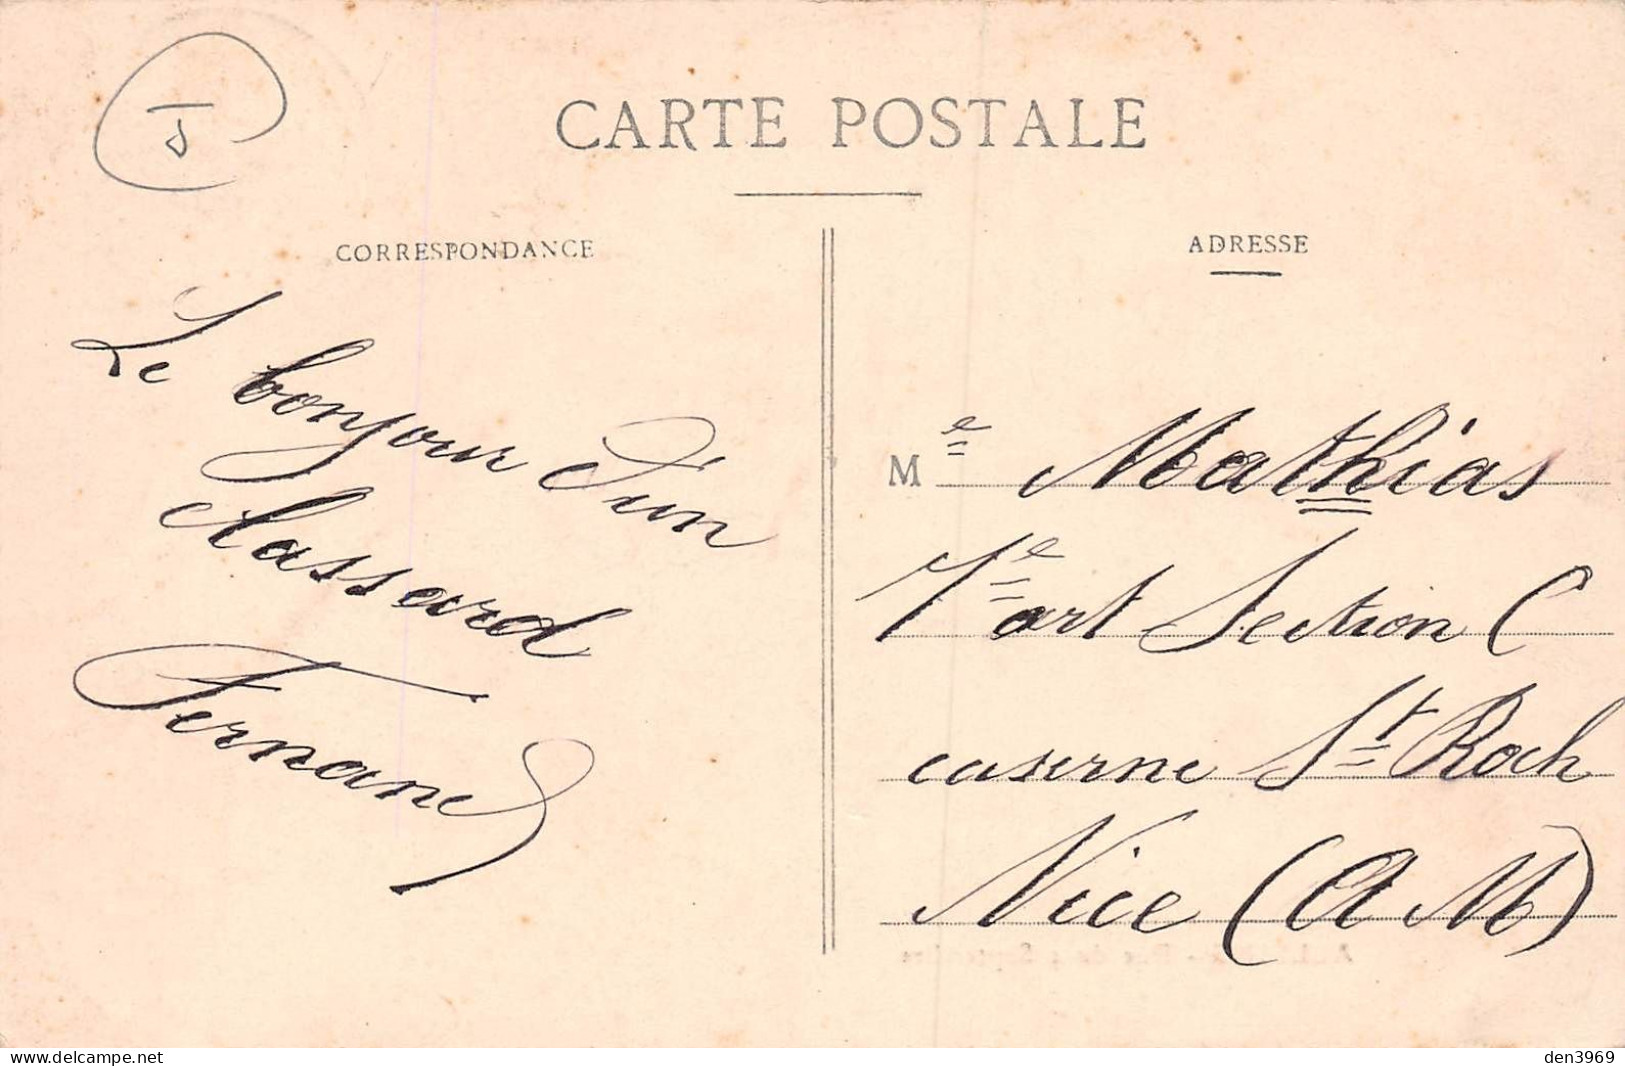 J
CARTE POSTALE
CORRESPONDANCE
Le bonjour d'un
classard
Fernand
ADRESSE
Me Mathias
7e art Section C
caserne St Roch
Nice (A M)
Rue du 4 Septembre
den3969